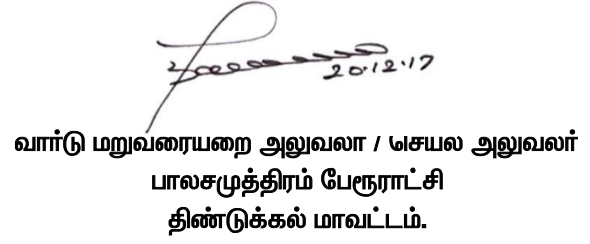 20.12.17
வார்டு மறுவரையறை அலுவலா / செயல அலுவலர்
பாலசமுத்திரம் பேரூராட்சி
திண்டுக்கல் மாவட்டம்.